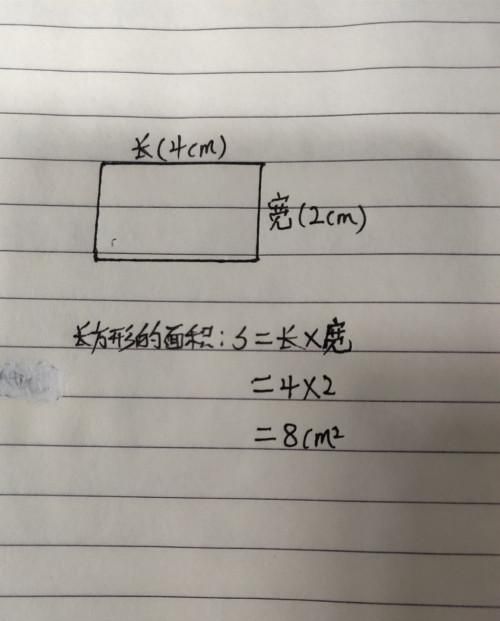 长(4cm)
宽(2cm)
长方形的面积:S=长×宽
=4×2
=8cm²